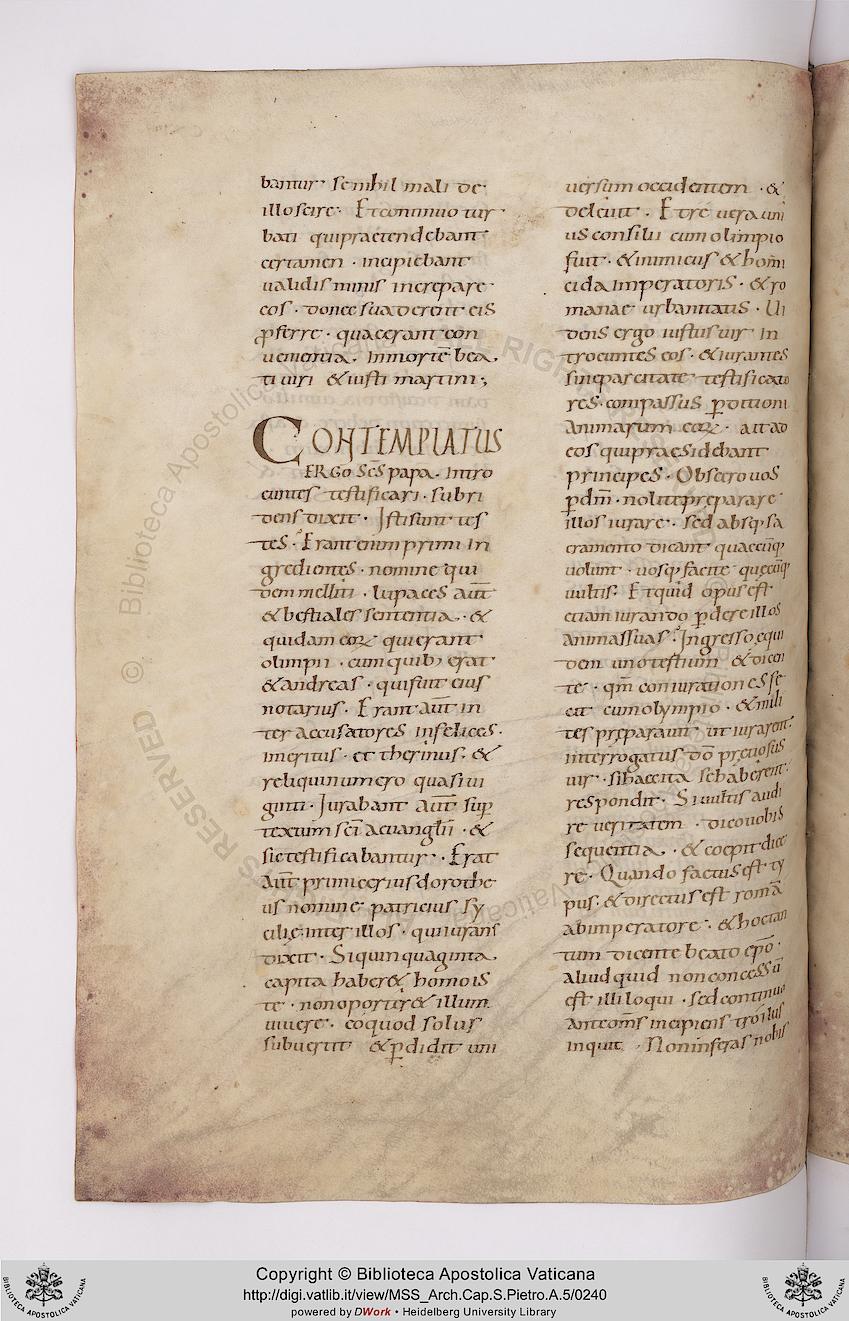 bantur se nihil mali de
illo scire · Et continuo tur
bati qui praetendebant
certamen · incipiebant
ualidis minis increpare
eos · donec suaderent eis
ꝓferre · quae erant con
uenientia · In mortē bea
ti uiri & iusti martini ;
CONTEMPLATUS
ERGO SC̄S papa · Intro
euntes testificari · subri
dens dixit · Isti sunt tes
tes · Erant enim primi in
gredientes · nomine qui
dem melliti · lupaces aūt
& bestiales sententia · &
quidam eoꝝ qui erant
olimpii · cum quibꝫ erat
& andreas · qui fuit eius
notarius · Erant aūt in
ter accusatores infelices ·
imeritus · et therinus · &
reliqui numero quasi ui
ginti · Iurabant aūt sup̄
textum sc̄i aeuangl̄ii · &
sic testificabantur · Erat
aūt primicerius dorothe
us nomine patricius sy
cilię inter illos · qui iurans
dixit · Si quinquaginta
capita haber& homo is
te · non oportur& illum
uiuere · eo quod solus
subuertit & ꝑdidit uni
uersum occidentem · &
deleuit · Et re uera uni
us consilii cum olimpio
fuit · & inimicus & homi
cida imperatoris · & ro
manae urbanitatis · Ui
dens ergo iustus uir in
troeuntes eos · & iurantes
sine parcitate testificato
res · compassus ꝑditioni
animarum eoꝝ · ait ad
eos qui praesidebant
principes · Obsecro uos
ꝑ dm̄ · nolite pręparare
illos iurare · sed absqꝫ sa
cramento dicant quaecūqꝫ
uolunt · uosqꝫ facite quęcūqꝫ
uultis · Et quid opus est
etiam iurando ꝑdere illos
animas suas · Ingresso equi
dem uno testium & dicen
te · qm̄ coniuratione
cum olympio · & mili
tes pręparauit ut iurarent ·
interrogatus dō pretiosus
uir · si haec ita se haberent ·
respondit · Si uultis audi
re ueritatem · dico uobis
sequentia · & coepit dice
re · Quando factus est ty
pus · & directus est romā
ab imperatore · & hoc tan
tum dicente beato ep̄o ·
aliud quid non concessū
est illi loqui · sed continuo
ante om̄s incipiens troilus
inquit · Non inseras nobis
Copyright © Biblioteca Apostolica Vaticana
http://digi.vatlib.it/view/MSS_Arch.Cap.S.Pietro.A.5/0240
powered by DWork • Heidelberg University Library